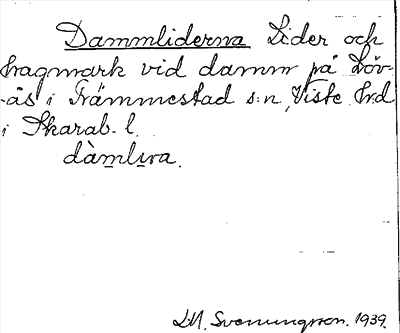 Dammliderna Lider och
hagmark vid damm på Löv-
-ås i Främmestad s:n, Viste hrd
i Skarab. l.
dàmlɩra.
L.M. Svenungsson. 1939.